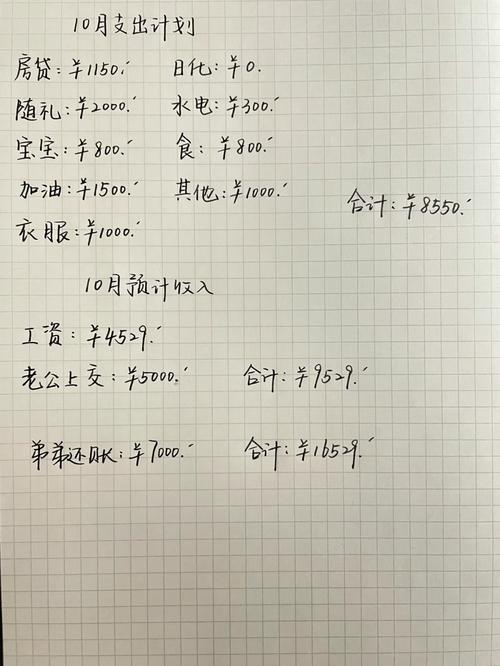 10月支出计划
房贷:¥1150.
日化:¥0.
随礼:¥2000.
水电:¥300.
宝宝:¥800.
食:¥800.
加油:¥1500.
其他:¥1000.
合计:¥8550.
衣服:¥1000.
10月预计收入
工资:¥4529.
老公上交:¥5000.
合计:¥9529.
弟弟还账:¥7000.
合计:¥16529.